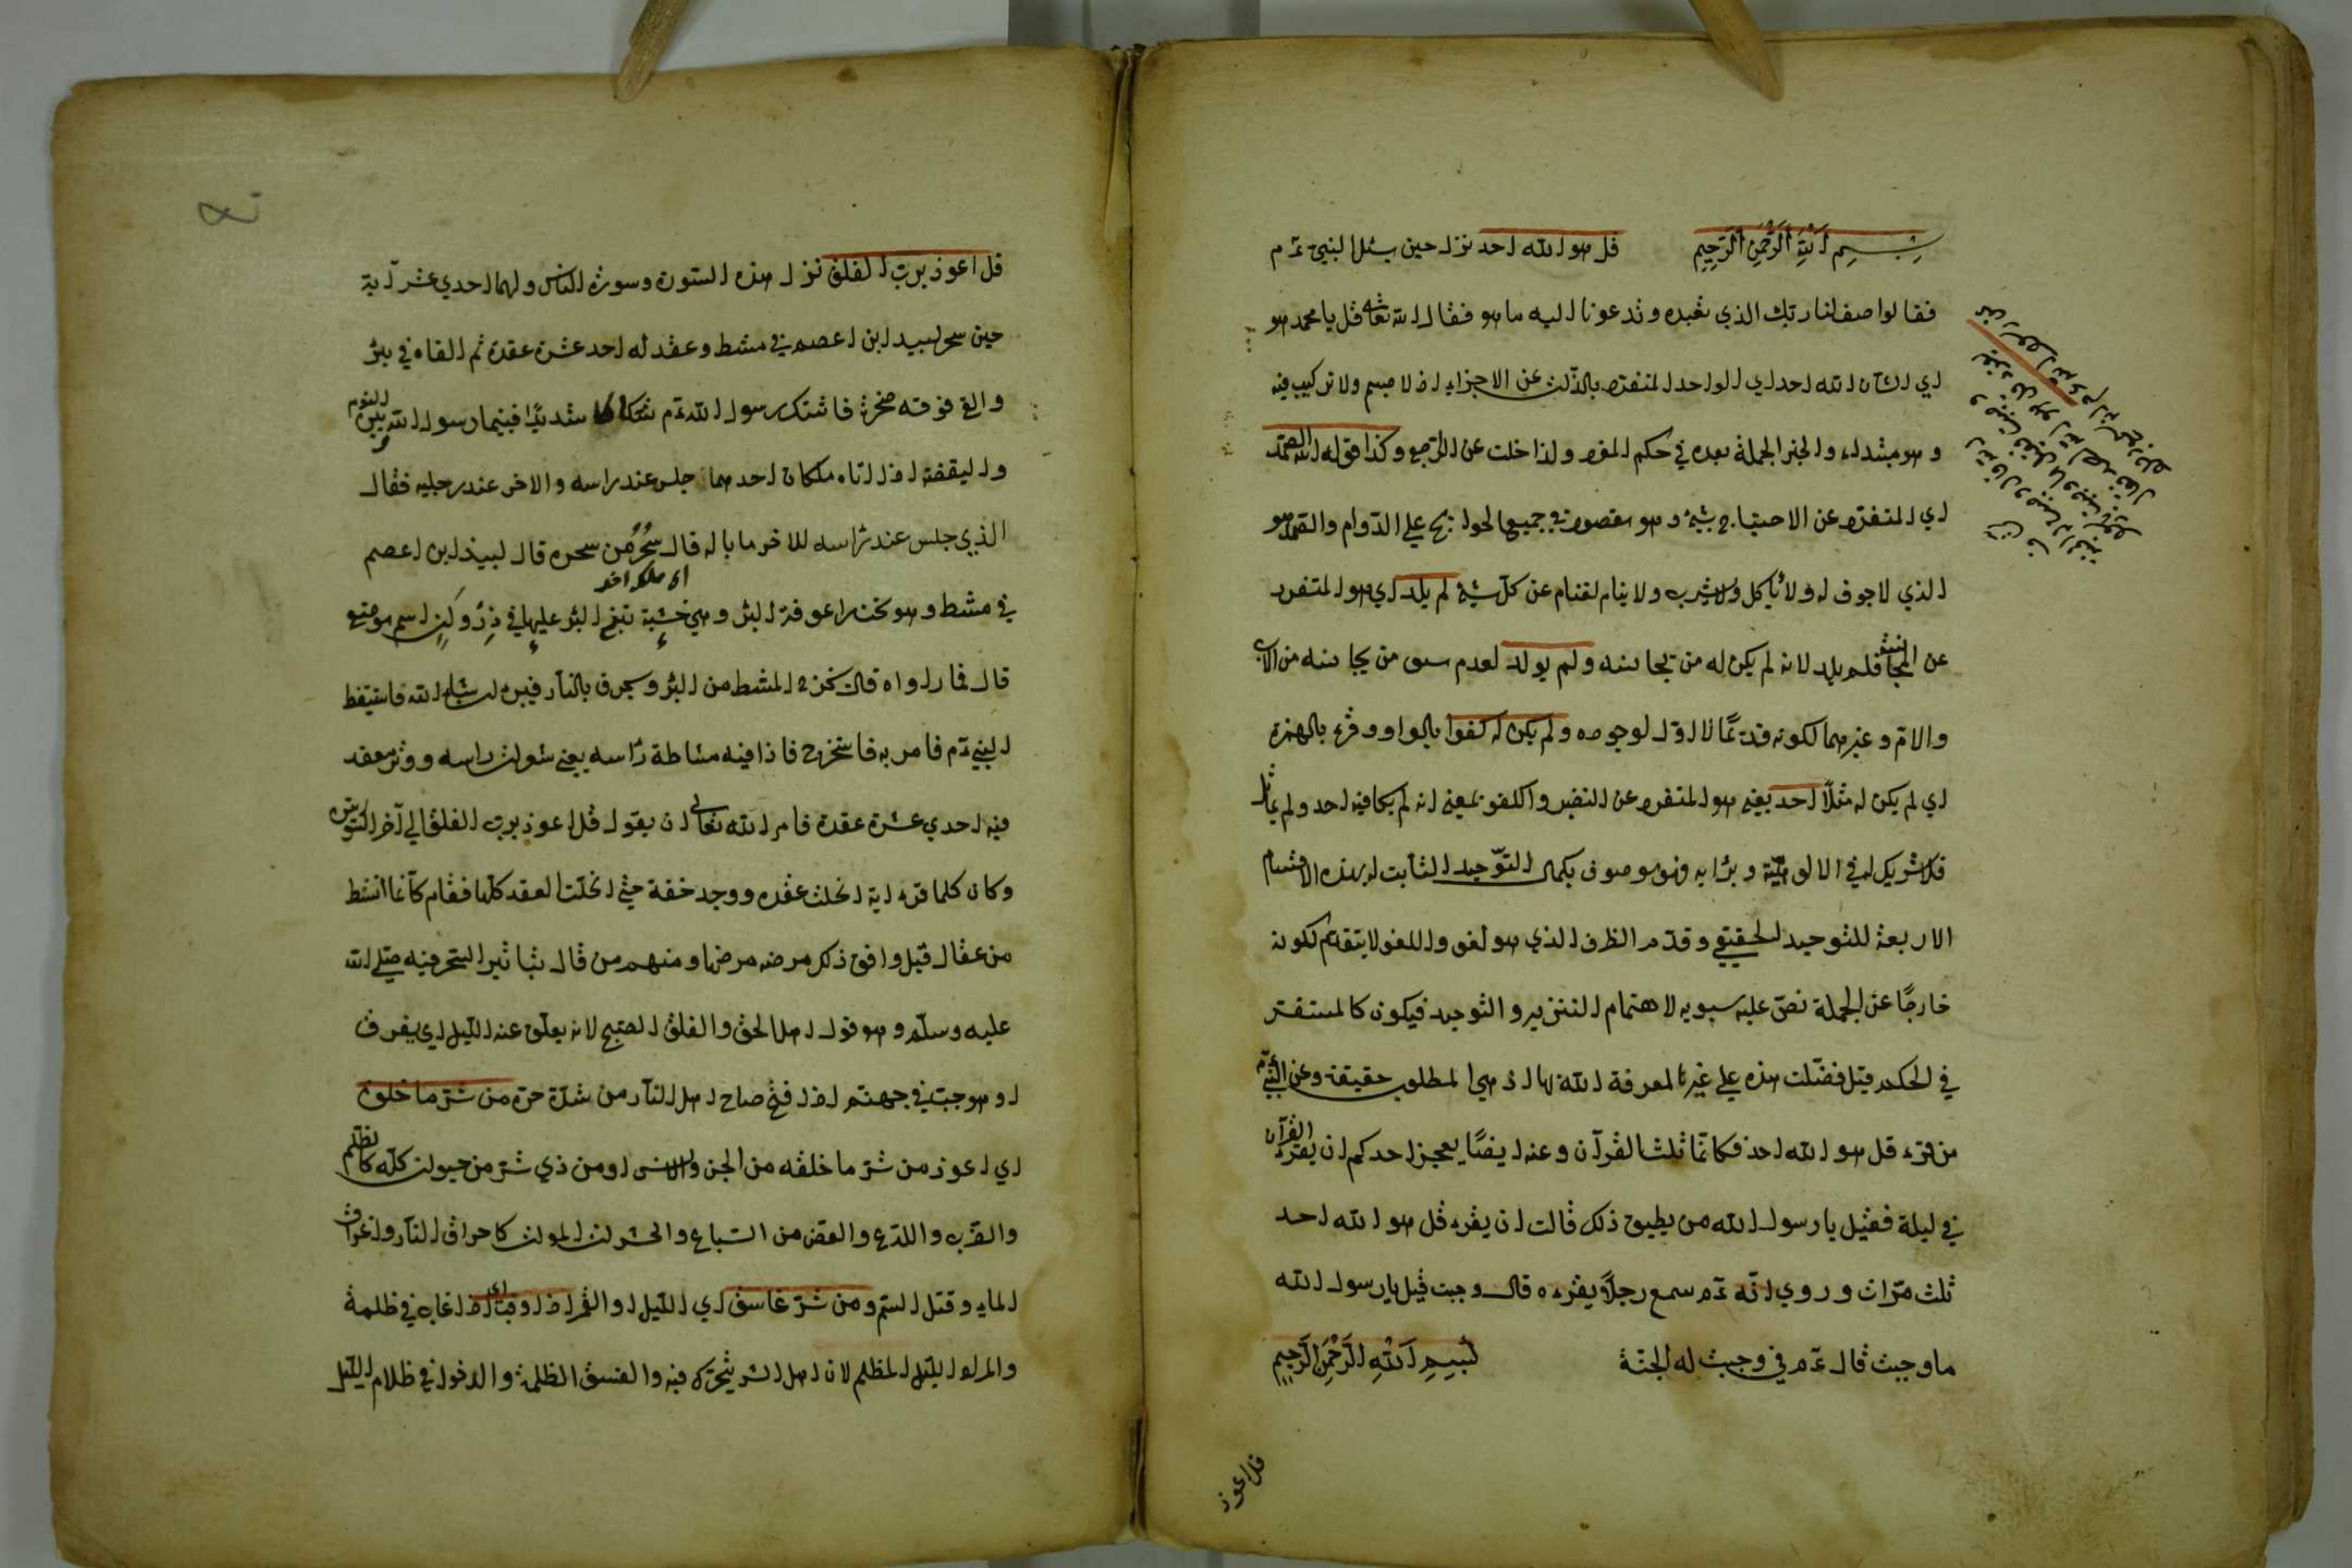 بِسْمِ اللَّهِ الرَّحْمَنِ الرَّحِيمِ قل هو الله احد نزل حين سئل النبي عم
فقالوا صف لنا ربك الذي تعبده وتدعونا اليه ما هو فقال الله تعالى قل يا محمد هو
اي الشان الله احد اي الواحد المنفرد بالذات عن الاجزاء اذ لا جسم ولا تركيب فيه
وهو مبتداء والخبر الجملة بعده في حكم المفرد ولذا خلت عن الراجع وكذا قوله الله الصمد
اي المنفرد عن الاحتياج بشيء وهو مقصود في جميع الحوائج علي الدوام والصمد هو
الذي لا جوف له ولا ياكل ولا يشرب ولا ينام لغنائه عن كل شيء لم يلد اي هو المتفرد
عن المجانسة فلم يلد لانه لم يكن له من يجانسه ولم يولد لعدم سبق من يجانسه من الاب
والام وغيرهما لكونه قديمًا لا اول لوجوده ولم يكن له كفوا بالواو وقرء بالهمزة
اي لم يكن له مثلًا احد يعني هو المتفرد عن النظير والكفو بمعنى انه لم يكافيه احد ولم يماثل
فلا شريك له في الالوهية وبرابه فهو موصوف بكمال التوحيد الثابت له بهذه الاقسام
الاربعة للتوحيد الحقيقي وقدم الظرف الذي هو لغو واللغو لا يتقدم لكونه
خارجًا عن الجملة نص عليه سيبويه لاهتمام التنزيه والتوحيد فيكون كالمستقر
في الحكم قيل فضلت هذه علي غيرها لمعرفة الله بها اذ هي المطلوب حقيقة وعن النبي عم
من قرء قل هو الله احد فكانما ثلث القرآن وعنه ايضًا يعجز احدكم ان يقرء القرآن
في ليلة فقيل يا رسول الله من يطيق ذلك قالت ان يقرء قل هو الله احد
ثلث مرات وروي انه عم سمع رجلًا يقرءه قال وجبت قيل يا رسول الله
ما وجبت قال عم في وجبت له الجنة بِسْمِ اللَّهِ الرَّحْمَنِ الرَّحِيمِ
قل اعوذ
قل اعوذ برب الفلق نزل هذه السورة وسورة الناس ولهما احدي عشر آية
حين سحر لبيد ابن اعصم في مشط وعقد له احد عشرة عقدة ثم القاه في بئر
والقي فوقه صخرة فاشتكى رسول الله عم شديدًا فبينما رسول الله بين النوم
واليقظة اذ اتاه ملكان احدهما جلس عند راسه والاخر عند رجليه فقال
الذي جلس عند راسه للاخر ما باله قال سُحُرٌ مَن سحره قال لبيد ابن اعصم
في مشط وهو تحت راعوفة البئر وهي خشبة البئر عليها في ذروان اسم موضع
قال فما دواه قال تخرج المشط من البئر ويحرق بالنار فيبرء ان شاء الله فاستيقظ
النبي عم فامر به فاستخرج فاذا فيه مشاطة راسه يعني راسه ووتر معقد
فيه احدي عشرة عقدة فامر الله تعالى ان يقول قل اعوذ برب الفلق الي آخر السورتين
وكان كلما قرء اية انحلت عقده ووجد خفة حتى انحلت العقد كلها فقام كأنما انشط
من عقال قيل وافق ذلك مرضه مرضا ومنهم من قال بتاثير السحر فيه صلى الله
عليه وسلم وهو قول اهل الحق والفلق الصبح لانه يفلق عنه الليل اي يفرق
او هو جب في جهنم اذا فتح صاح اهل النار من شدة حره من شر ما خلق
اي اعوذ من شر ما خلقه من الجن والانس او من ذي شر من حيوان كله كالظلم
والضرب واللدغ والعض من السباع والحشرات او الموات كاحراق النار واغراق
الماء وقتل السم ومن شر غاسق اي الليل او القمر اذا وقب اي اذا غاب في ظلمة
والمراد الليل المظلم لان اهل الشر يتحرك فيه والغسق الظلمة والدخول في ظلام الليل